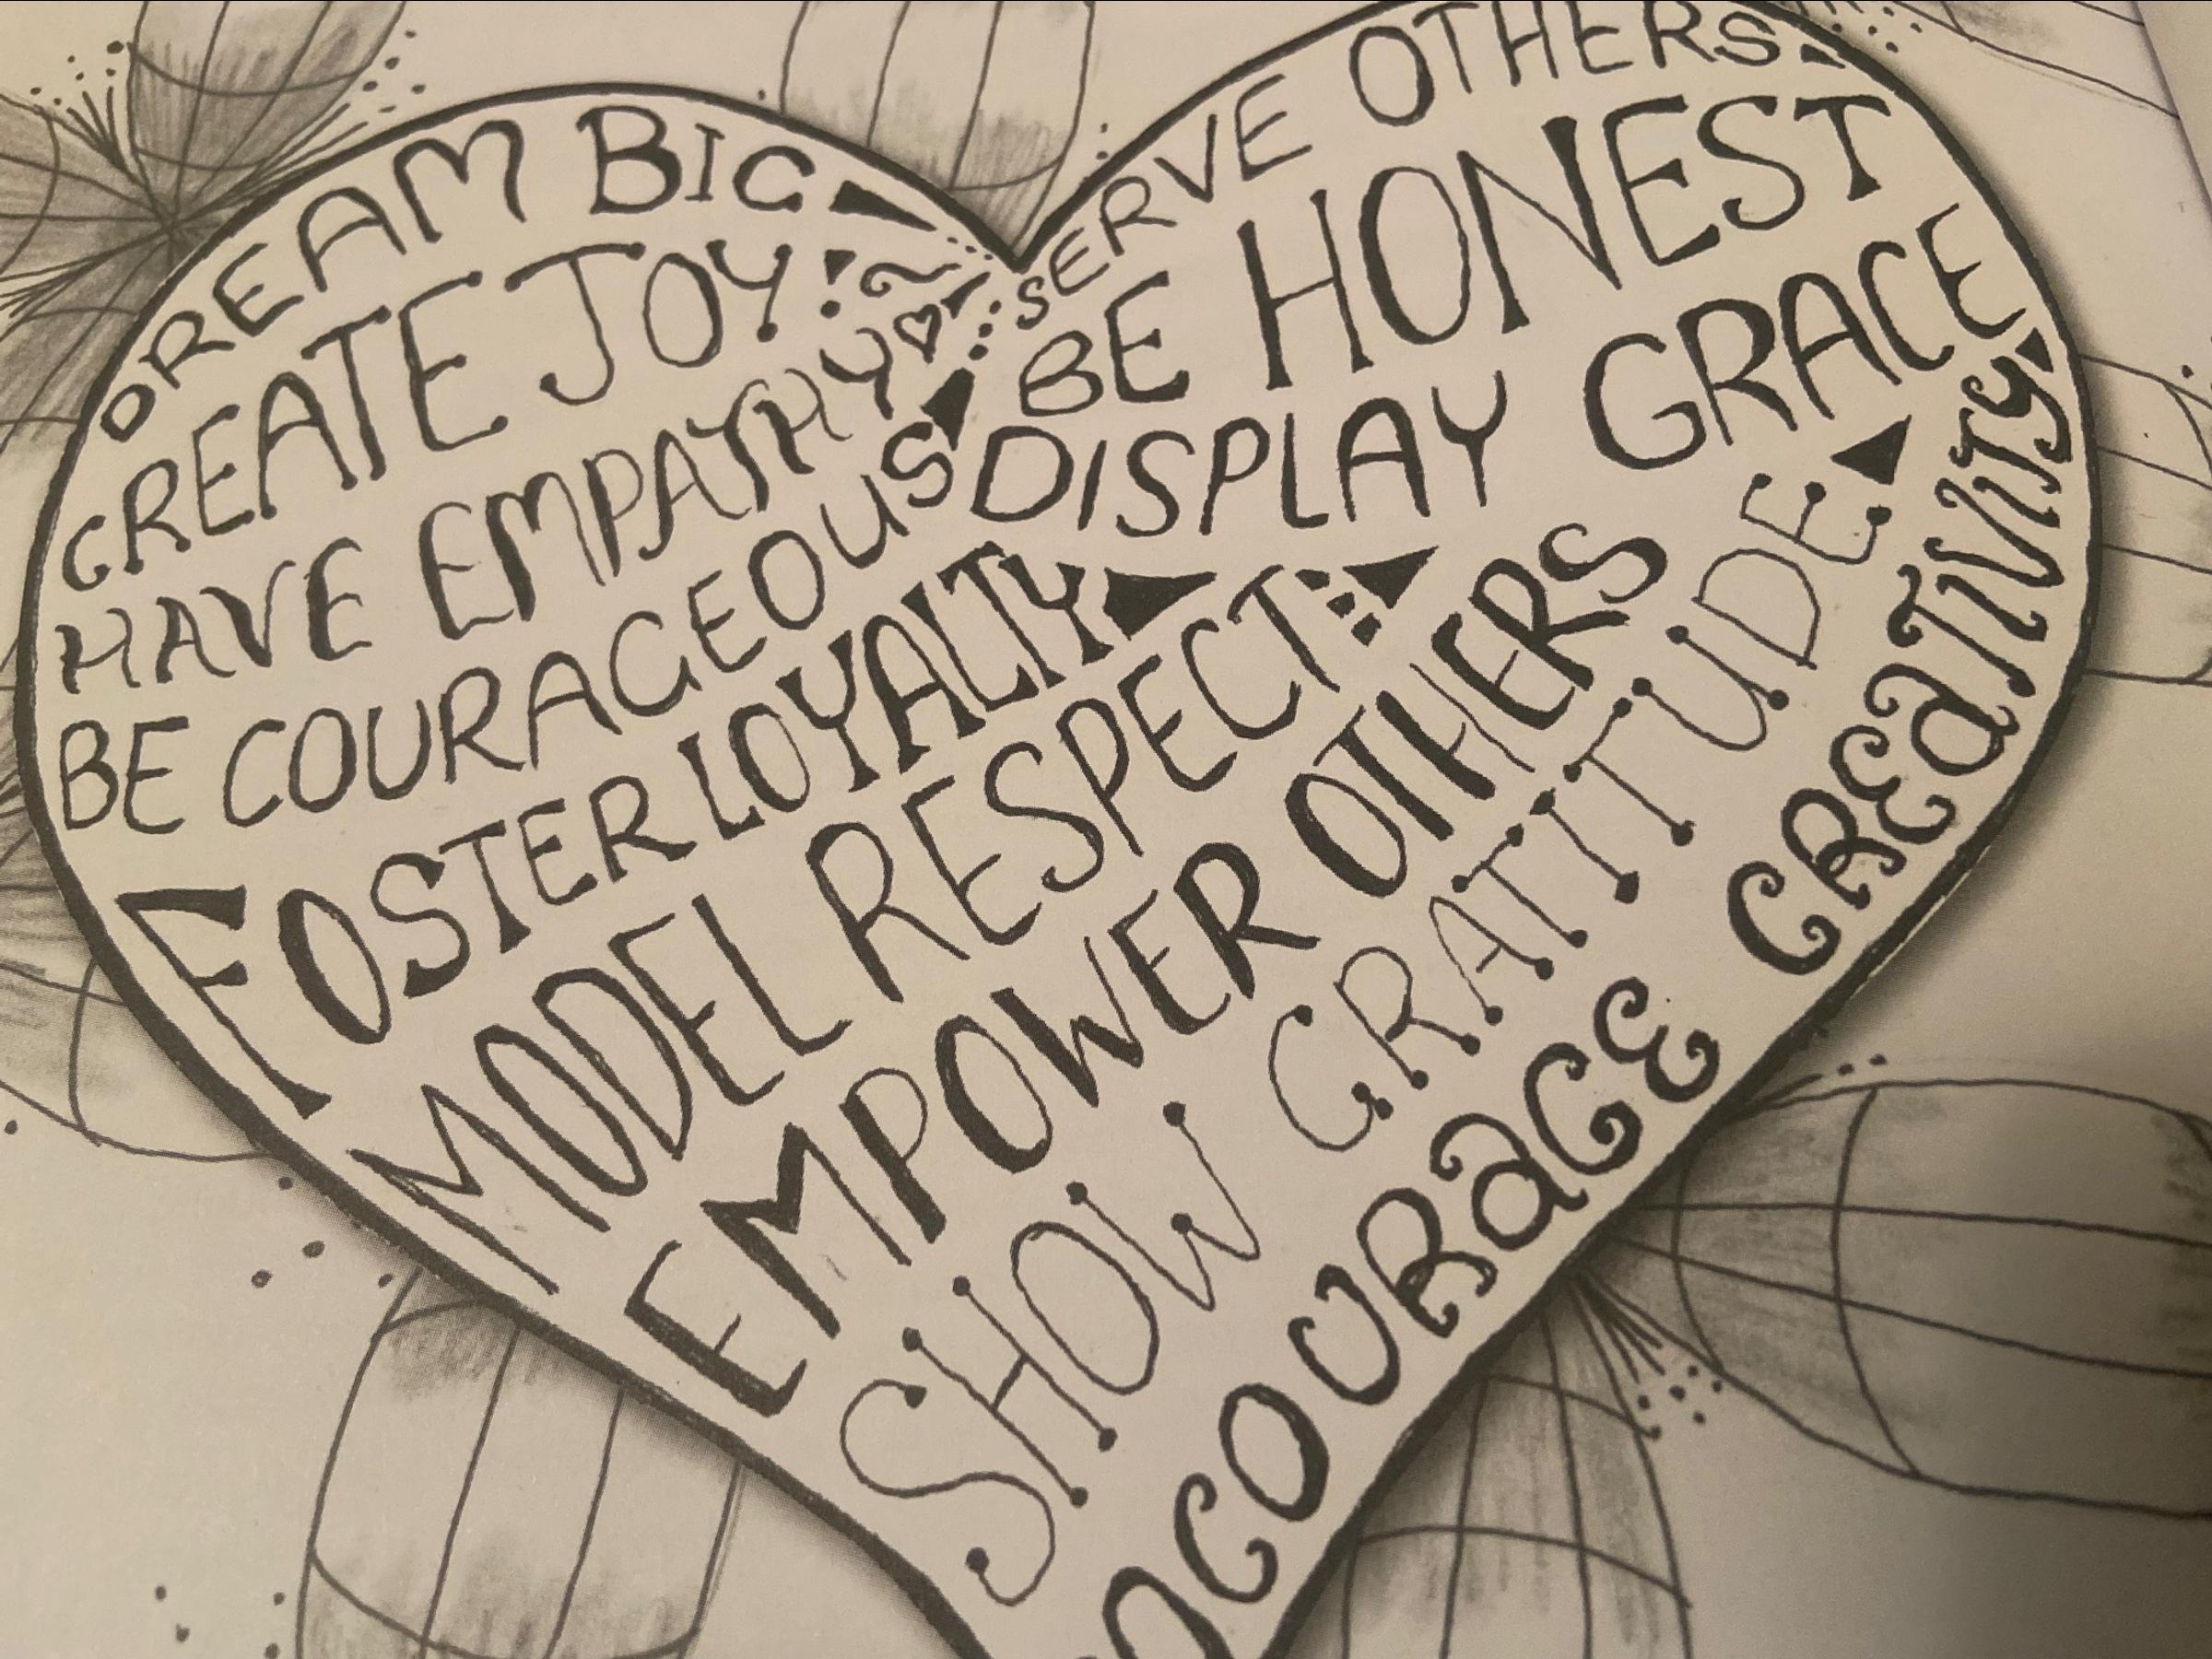 DREAM BIG
CREATE JOY!
HAVE EMPATHY
BE COURAGEOUS
SERVE OTHERS
BE HONEST
DISPLAY GRACE
FOSTER LOYALTY
MODEL RESPECT
EMPOWER OTHERS
SHOW GRATITUDE
CREATIVITY